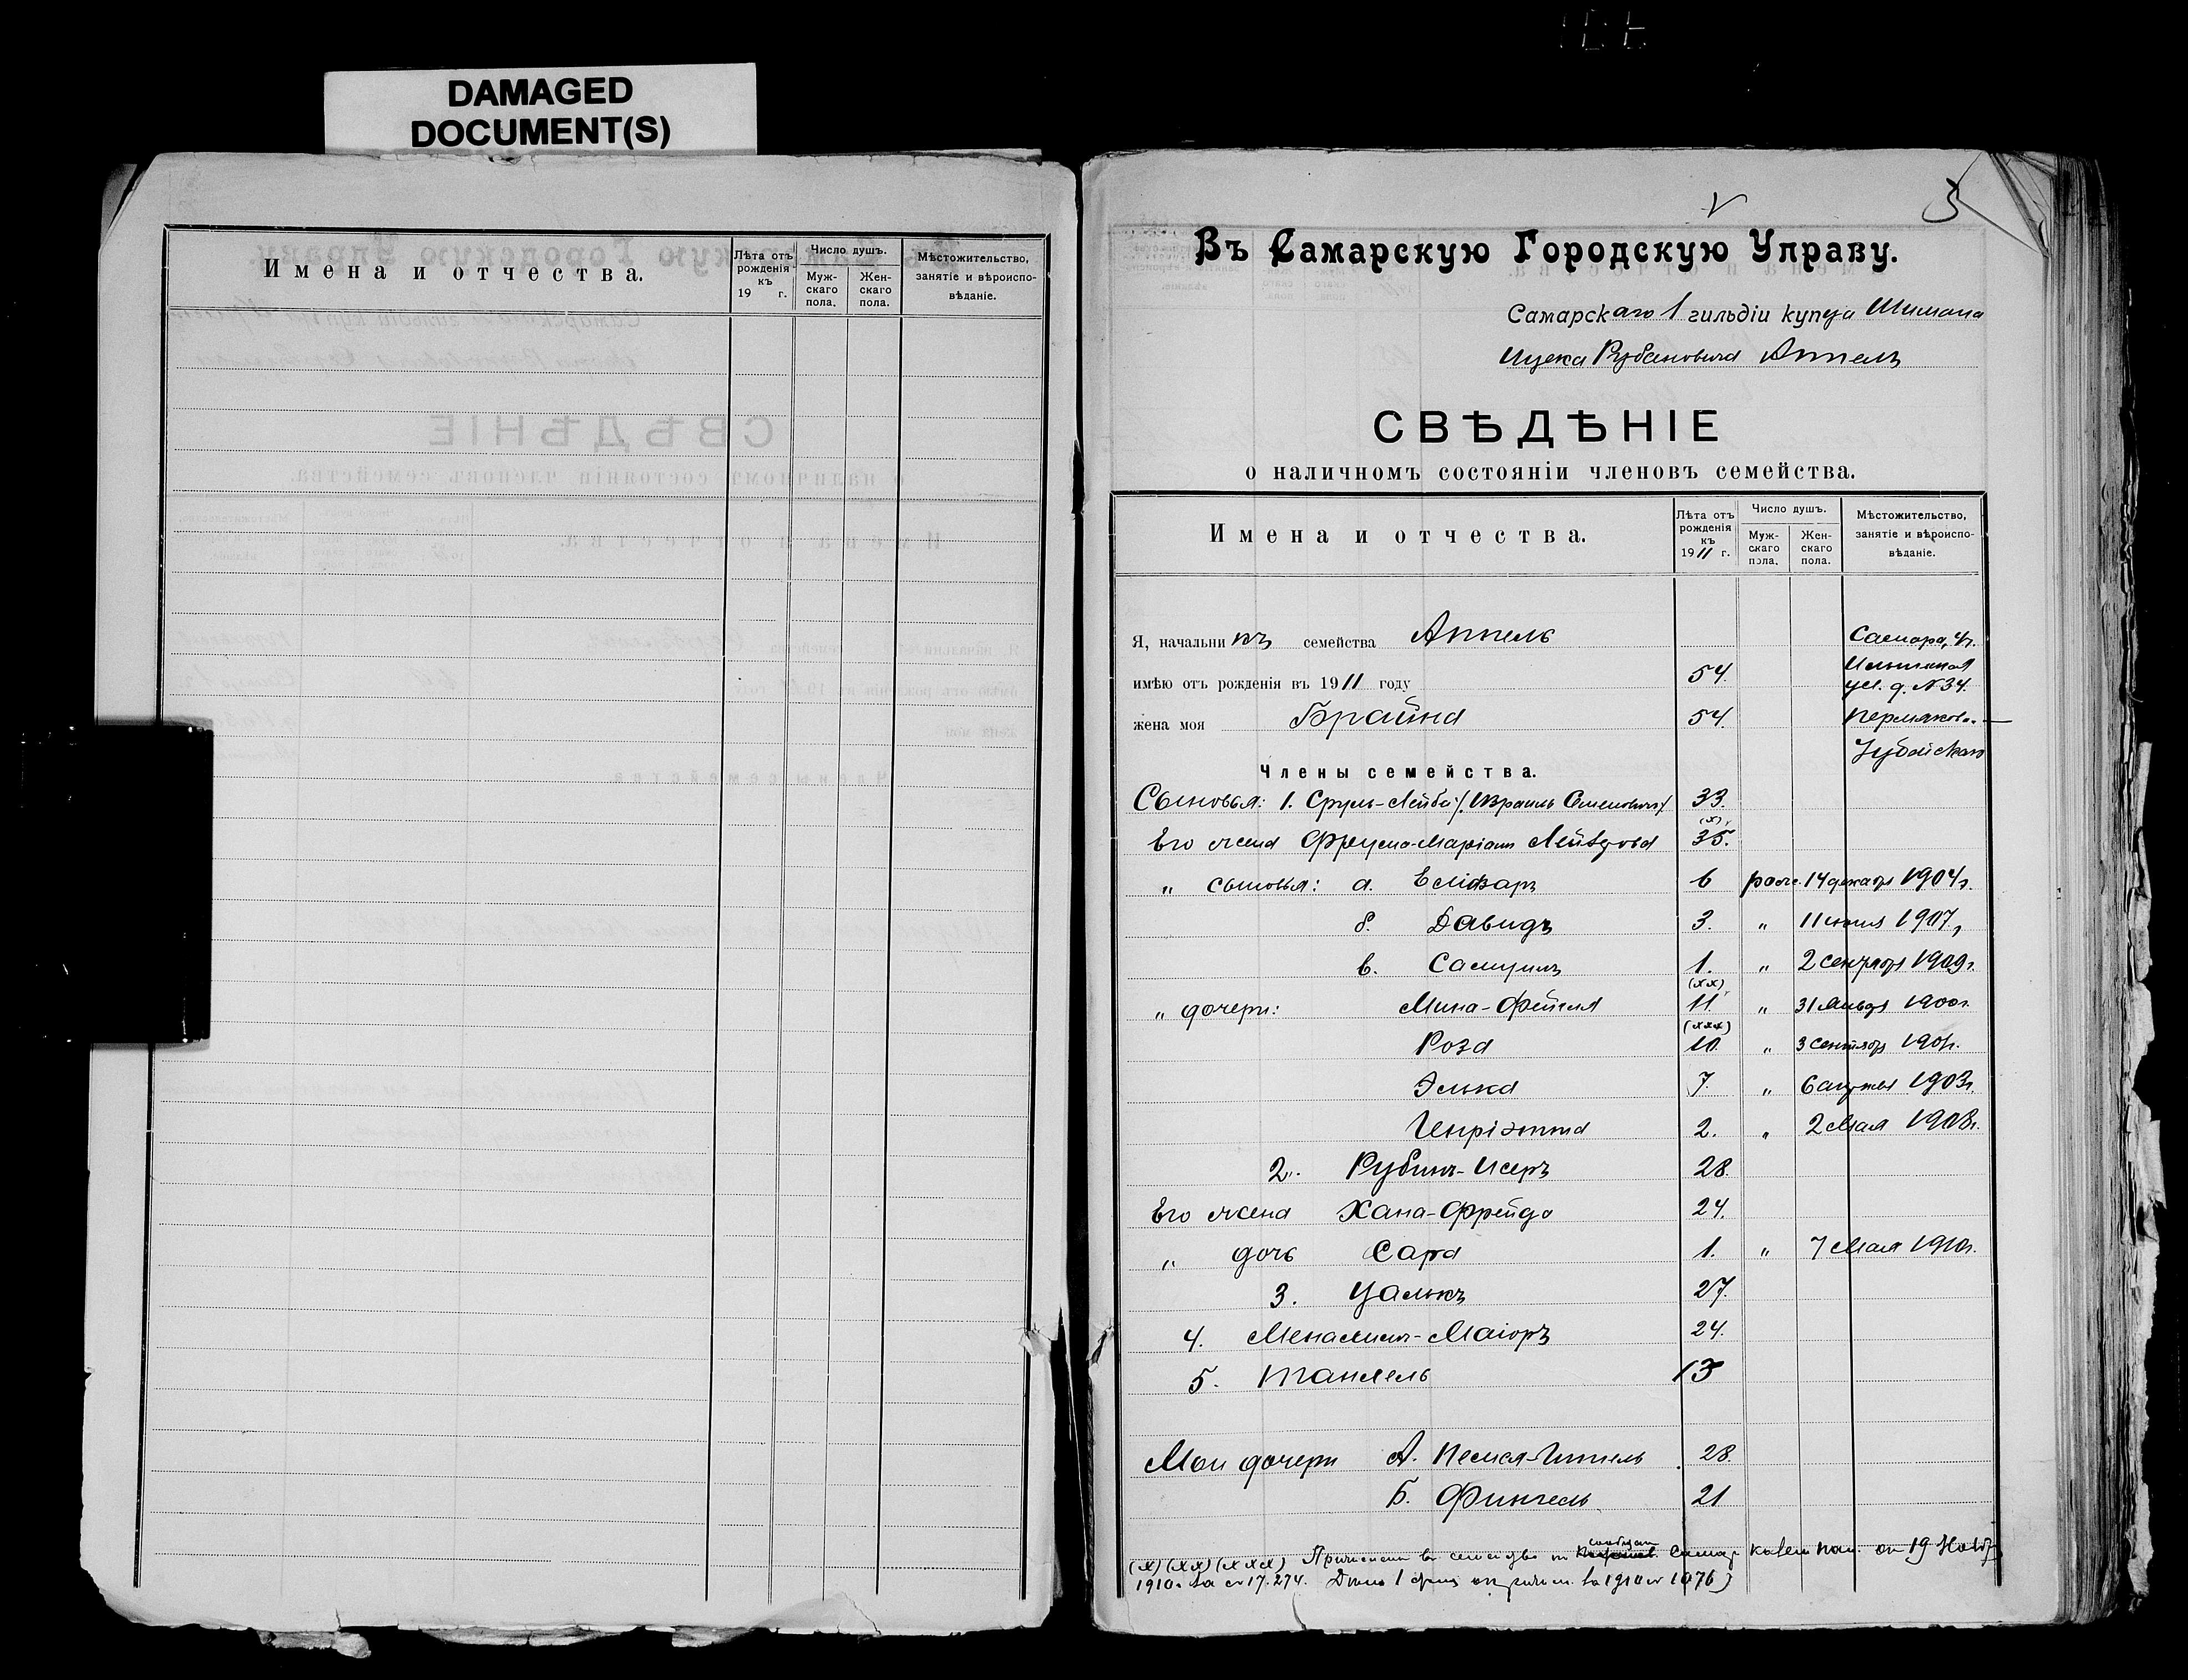 DAMAGED
DOCUMENT(S)
Имена и отчества.
Лѣта отъ рожденія къ 19 г.
Число душъ.
Муж-скаго пола.
Жен-скаго пола.
Мѣстожительство, занятіе и вѣроиспо-вѣданіе.
5
Въ Самарскую Городскую Управу.
Самарскаго 1 гильдіи купца Шимана
Ицека Рубановича Аппель
СВѢДѢНІЕ
о наличномъ состояніи членовъ семейства.
Имена и отчества.
Лѣта отъ рожденія къ 1911 г.
Число душъ.
Муж-скаго пола.
Жен-скаго пола.
Мѣстожительство, занятіе и вѣроиспо-вѣданіе.
Я, начальникъ семейства Аппель Самара, уг.
имѣю отъ рожденія въ 1911 году 54. Ильинской
ул. д. N 34.
жена моя Брайна 54.
Члены семейства.
Сыновья: 1. Сруль-Лейба /Израиль Семеновичъ/ 33.
(x)
Его жена Фрума-Маріам 35.
" сыновья: а. Еліазаръ 6 рож. 14 декабр 1904 г.
б. Давидъ 3. " 11 1907 г.
в. Самуилъ 1. " 2 сентябр 1909 г.
(xx)
" дочери: Мина-Фейгля 11. " 31 Январ 1900 г.
(xxx)
Роза 10. " 3 сентябр 1901 г.
Элька 7. " 6 августа 1903 г.
Генріэтта 2. " 2 Мая 1908 г.
2. Рубинъ-Исеръ 28.
Его жена Хана-Фрейда 24.
" дочь Сара 1. " 7 Мая 1910 г.
3. Цалькъ 27.
4. Менахимъ-Маіоръ 24.
5. Танхель 13
Мои дочери А. Песля-Гитель 28.
Б. Фингель 21
(x) (xx) (xxx) Причислены въ семейство по сообщен Самар Казен Пал. от 19 Нояб
1910 г. за № 17.274.